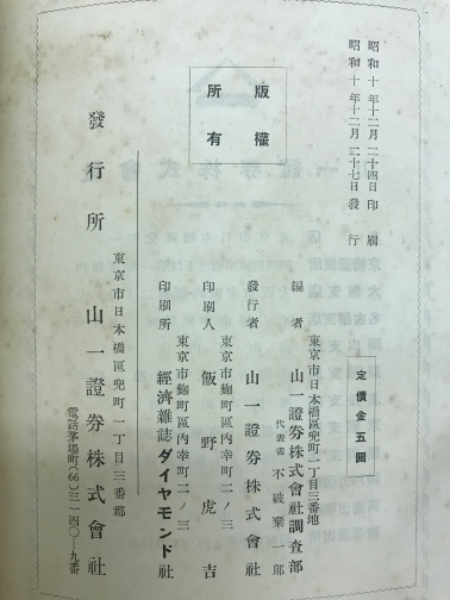 昭和十年十二月二十四日印刷
昭和十年十二月二十七日發行
定價金五圓
版權
所有
東京市日本橋區兜町一丁目三番地
編者 山一證券株式會社調査部
代表者 不破棄一郎
發行者 山一證券株式會社
東京市麹町區内幸町二ノ三
印刷人 飯野虎吉
東京市麹町區内幸町二ノ三
印刷所 經濟雜誌ダイヤモンド社
東京市日本橋區兜町一丁目三番
發行所 山一證券株式會社
電話茅場町(66)三一四〇—九番